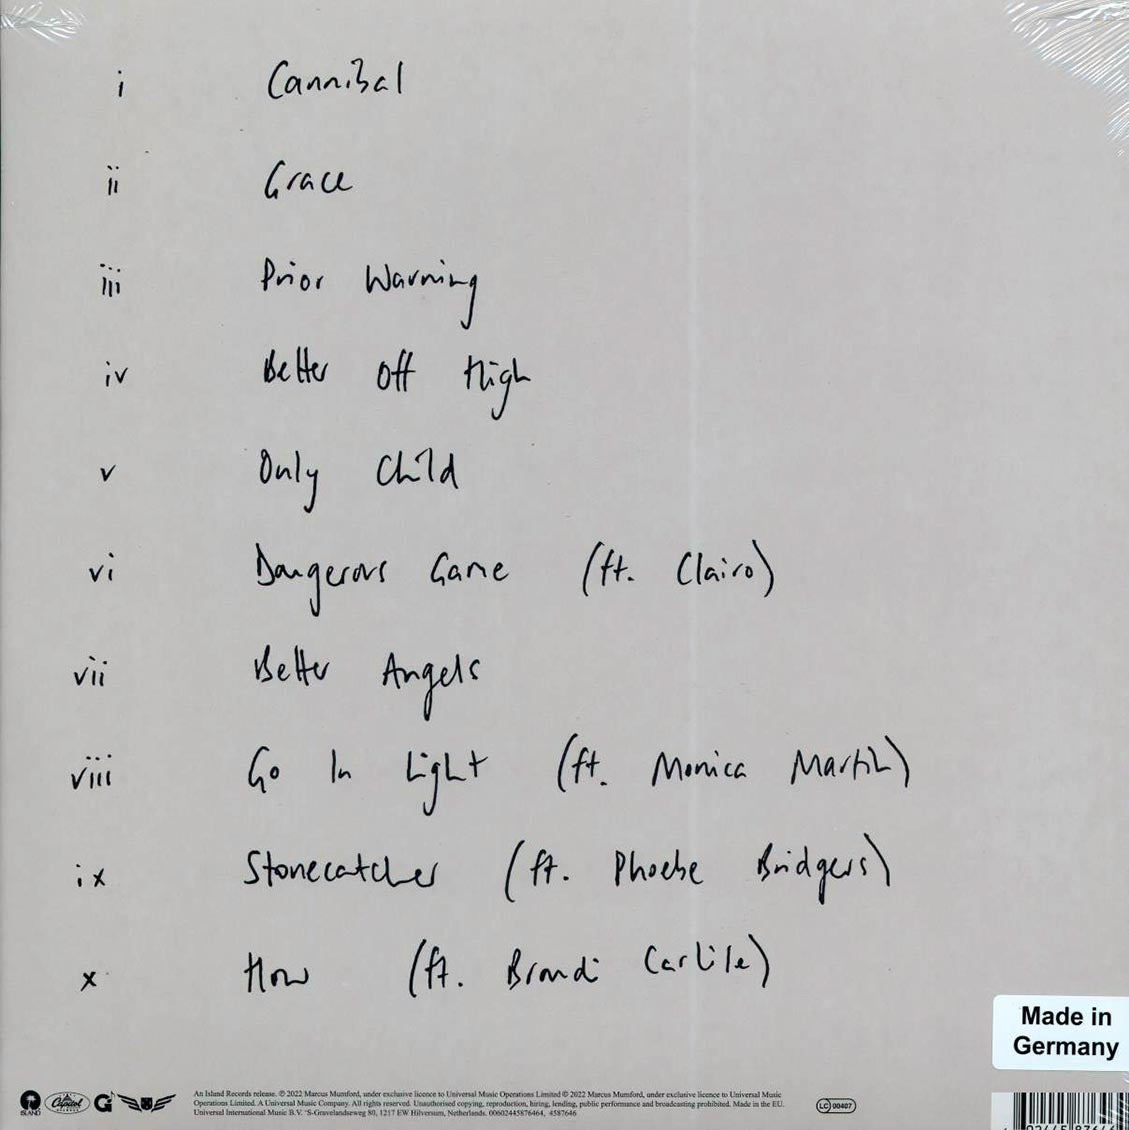 i Cannibal
ii Grace
iii Prior Warning
iv Better Off High
v Only Child
vi Dangerous Game (ft. Clairo)
vii Better Angels
viii Go In Light (ft. Monica Martin)
ix Stonecatcher (ft. Phoebe Bridgers)
x How (ft. Brandi Carlile)
Made in
Germany
ISLAND
Capitol
G
An Island Records release. ℗ 2022 Marcus Mumford, under exclusive licence to Universal Music Operations Limited © 2022 Marcus Mumford, under exclusive licence to Universal Music
Operations Limited. A Universal Music Company. All rights reserved. Unauthorised copying, reproduction, hiring, lending, public performance and broadcasting prohibited. Made in the EU.
Universal International Music B.V. 'S-Gravelandseweg 80, 1217 EW Hilversum, Netherlands. 00602445876464, 4587646
LC 00407